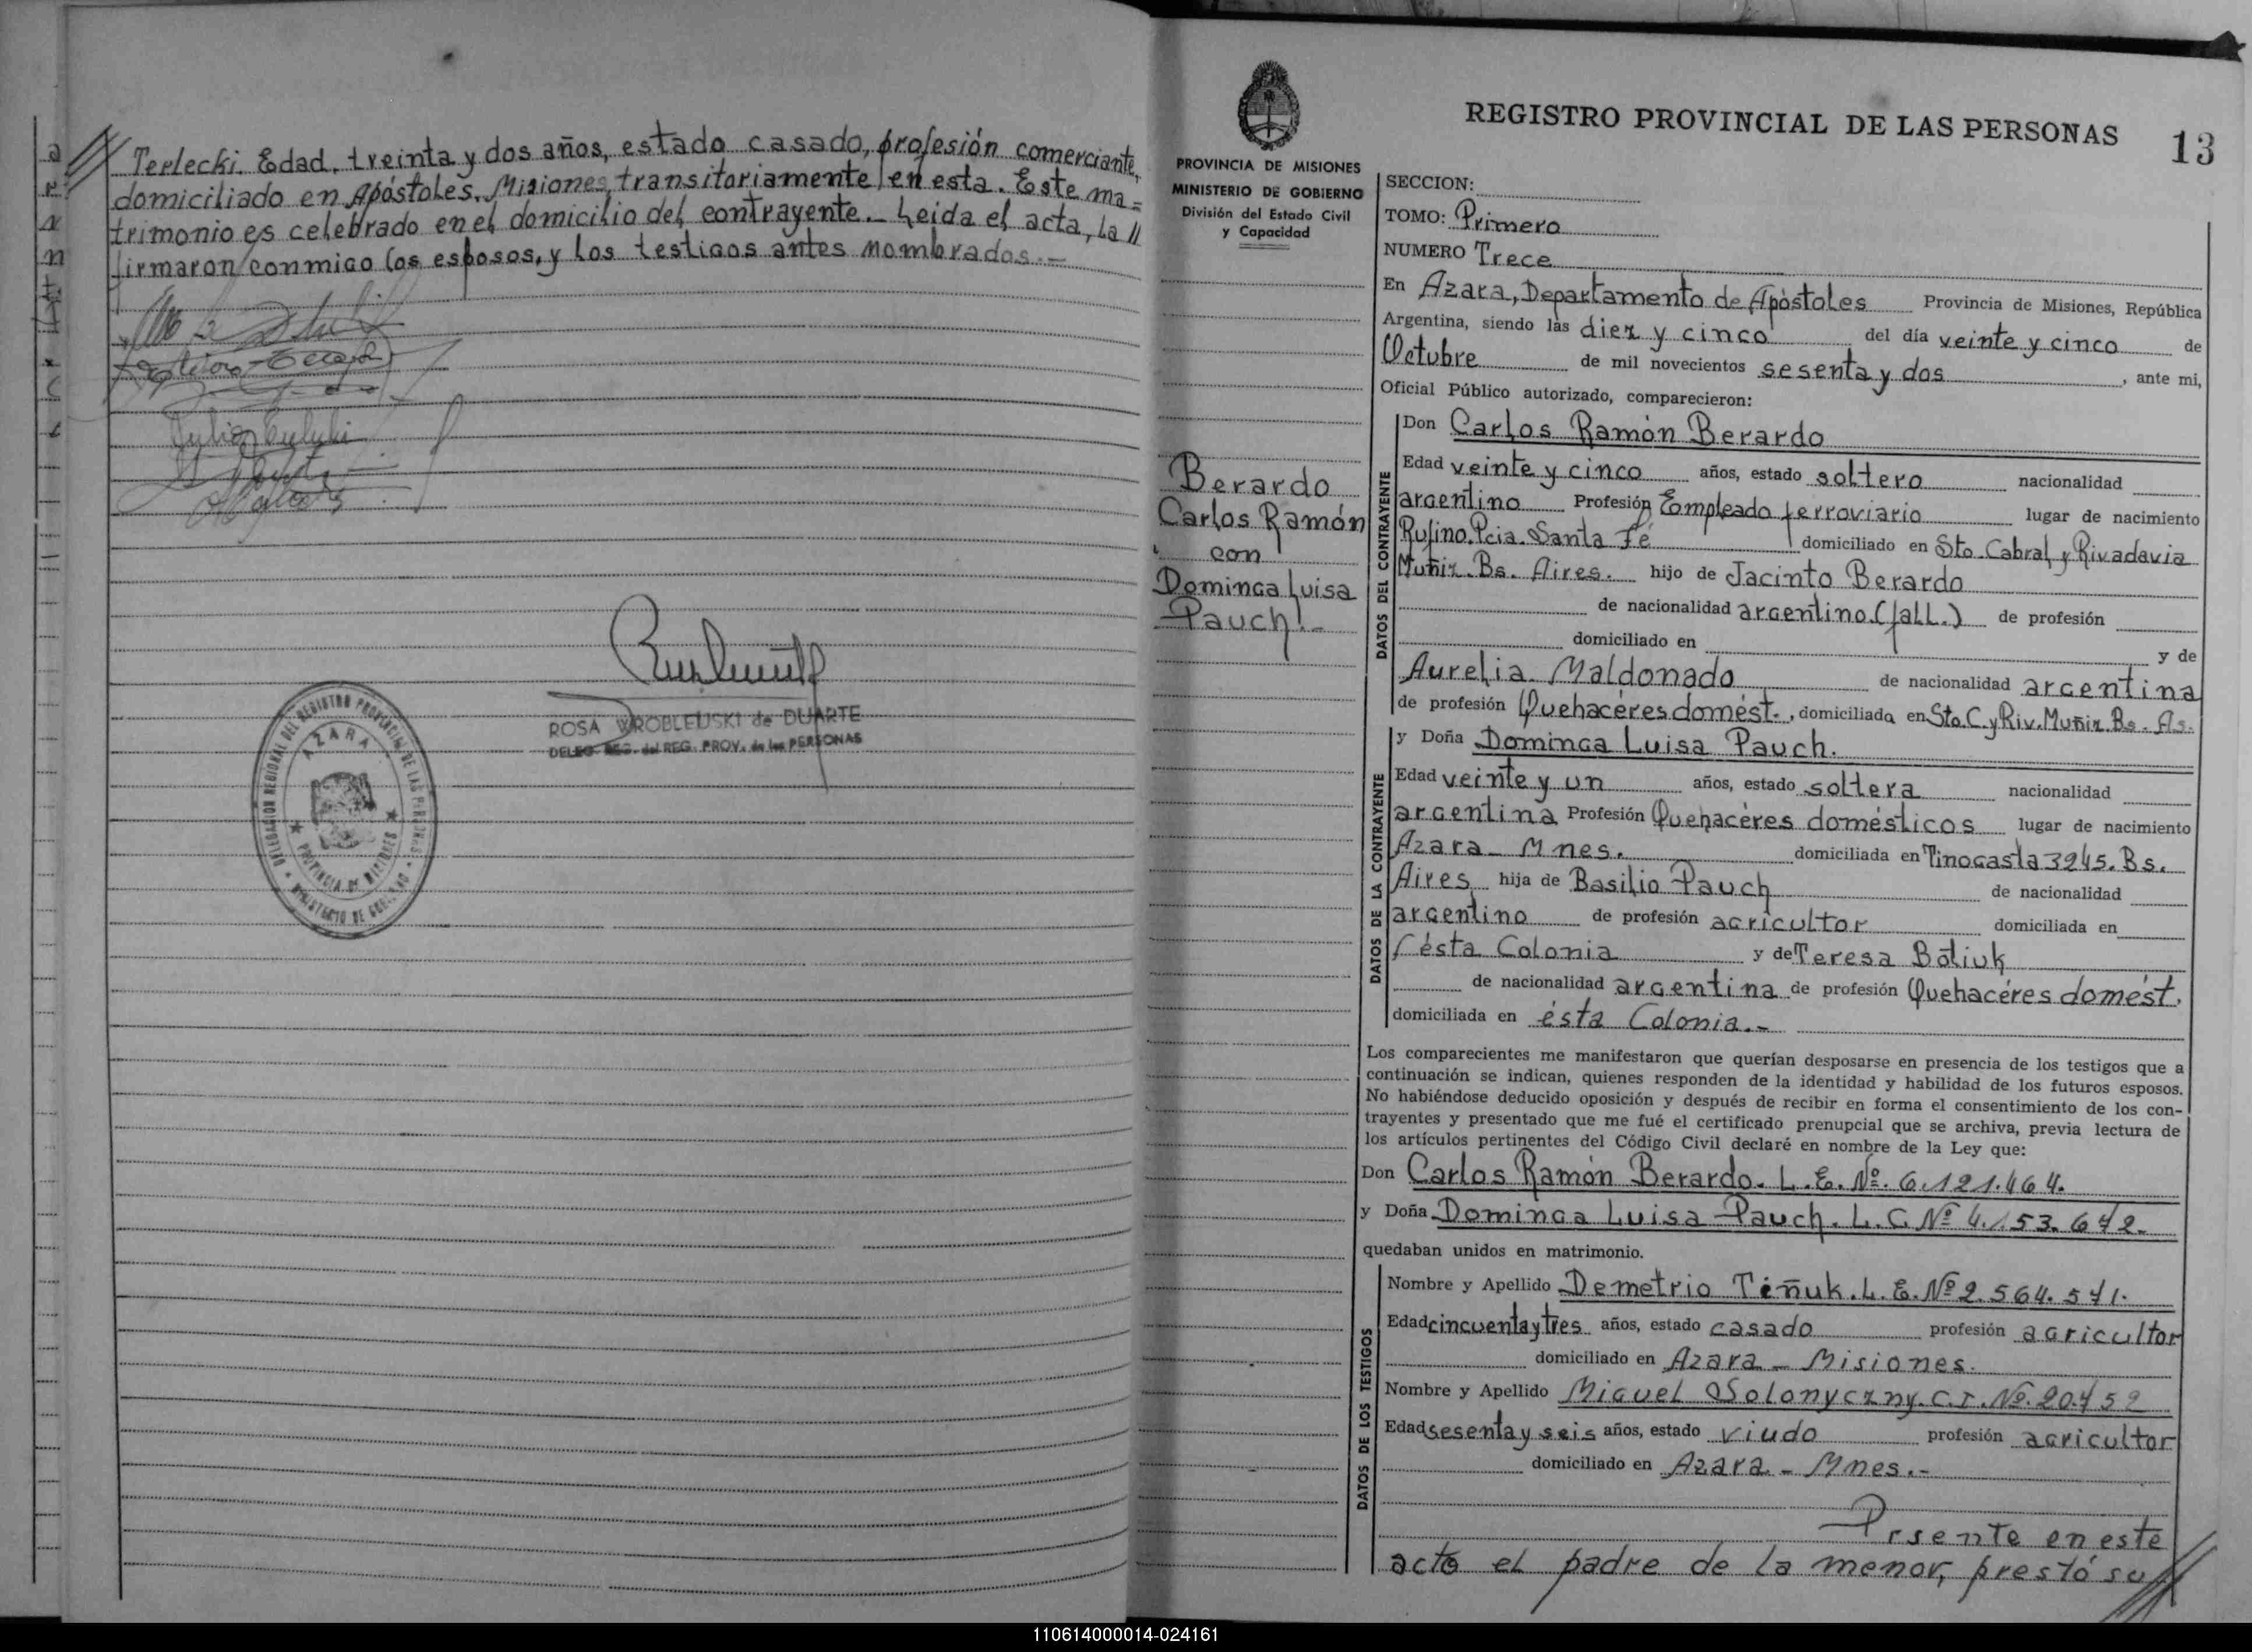 Terlecki. Edad, treinta y dos años, estado casado, profesión comerciante,
domiciliado en Apóstoles, Misiones, transitoriamente en esta. Este ma=
trimonio es celebrado en el domicilio del contrayente._ Leida el acta, la //
firmaron conmigo los esposos, y los testigos antes nombrados.—
ROSA WROBLEUSKI de DUARTE
DELEG. REG. del REG. PROV. de las PERSONAS
DELEGACION REGIONAL DEL REGISTRO PROVINCIAL DE LAS PERSONAS
AZARA
PROVINCIA DE MISIONES
MINISTERIO DE GOBIERNO
PROVINCIA DE MISIONES
MINISTERIO DE GOBIERNO
División del Estado Civil
y Capacidad
Berardo
Carlos Ramón
con
Dominga Luisa
Pauch.-
REGISTRO PROVINCIAL DE LAS PERSONAS 13
SECCION:
TOMO: Primero
NUMERO Trece
En Azara, Departamento de Apóstoles Provincia de Misiones, República
Argentina, siendo las diez y cinco del día veinte y cinco de
Octubre de mil novecientos sesenta y dos, ante mi,
Oficial Público autorizado, comparecieron:
DATOS DEL CONTRAYENTE
Don Carlos Ramón Berardo
Edad veinte y cinco años, estado soltero nacionalidad
argentino Profesión Empleado ferroviario lugar de nacimiento
Rufino. Pcia. Santa Fé domiciliado en Sto. Cabral y Rivadavia
Muñiz. Bs. Aires. hijo de Jacinto Berardo
de nacionalidad argentino. (fall.) de profesión
domiciliado en y de
Aurelia Maldonado de nacionalidad argentina
de profesión Quehacéres domést., domiciliada en Sto. C. y Riv. Muñiz. Bs. As.
DATOS DE LA CONTRAYENTE
y Doña Dominga Luisa Pauch.
Edad veinte y un años, estado soltera nacionalidad
argentina Profesión Quehacéres domésticos lugar de nacimiento
Azara - Mnes. domiciliada en Tinogasta 3245. Bs.
Aires hija de Basilio Pauch de nacionalidad
argentino de profesión agricultor domiciliada en
ésta Colonia y de Teresa Bótiuk
de nacionalidad argentina de profesión Quehacéres domést.
domiciliada en ésta Colonia.-
Los comparecientes me manifestaron que querían desposarse en presencia de los testigos que a
continuación se indican, quienes responden de la identidad y habilidad de los futuros esposos.
No habiéndose deducido oposición y después de recibir en forma el consentimiento de los con-
trayentes y presentado que me fué el certificado prenupcial que se archiva, previa lectura de
los artículos pertinentes del Código Civil declaré en nombre de la Ley que:
Don Carlos Ramón Berardo. L.E. Nº. 6.121.464.
y Doña Dominga Luisa Pauch. L.C. Nº 4.153.642.
quedaban unidos en matrimonio.
DATOS DE LOS TESTIGOS
Nombre y Apellido Demetrio Tiñuk. L.E. Nº 2.564.541.
Edad cincuenta y tres años, estado casado profesión agricultor
domiciliado en Azara - Misiones.
Nombre y Apellido Miguel Solonyczny. C.I. Nº. 20452
Edad sesenta y seis años, estado viudo profesión agricultor
domiciliado en Azara - Mnes.-
Prsente en este
acto el padre de la menor, prestó su
110614000014-024161